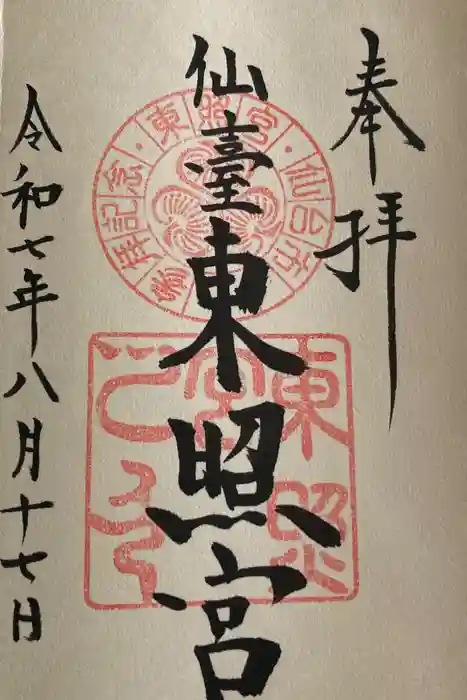 奉拝
仙臺東照宮
令和七年八月十七日
東照宮・仙台市・参拝記念
東照宮